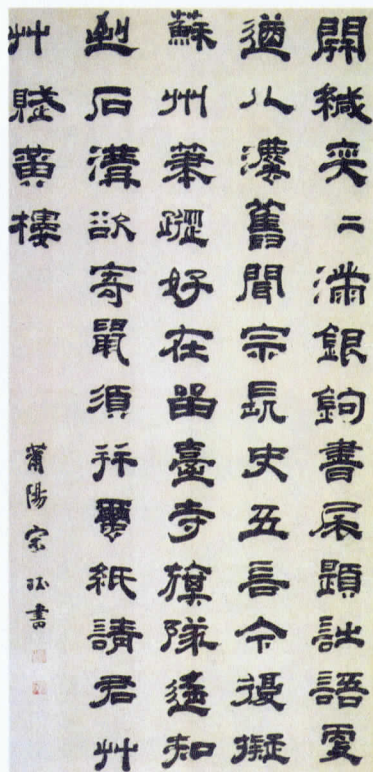 開緘奕二滿銀鉤書尾題詩語更
遒八灋舊聞宗長史五言今復擬
蘇州筆蹤好在留臺寺旗隊遙知
到石溝欲寄鼠須并繭紙請君艸
艸賦黃樓
莆陽宋玨書